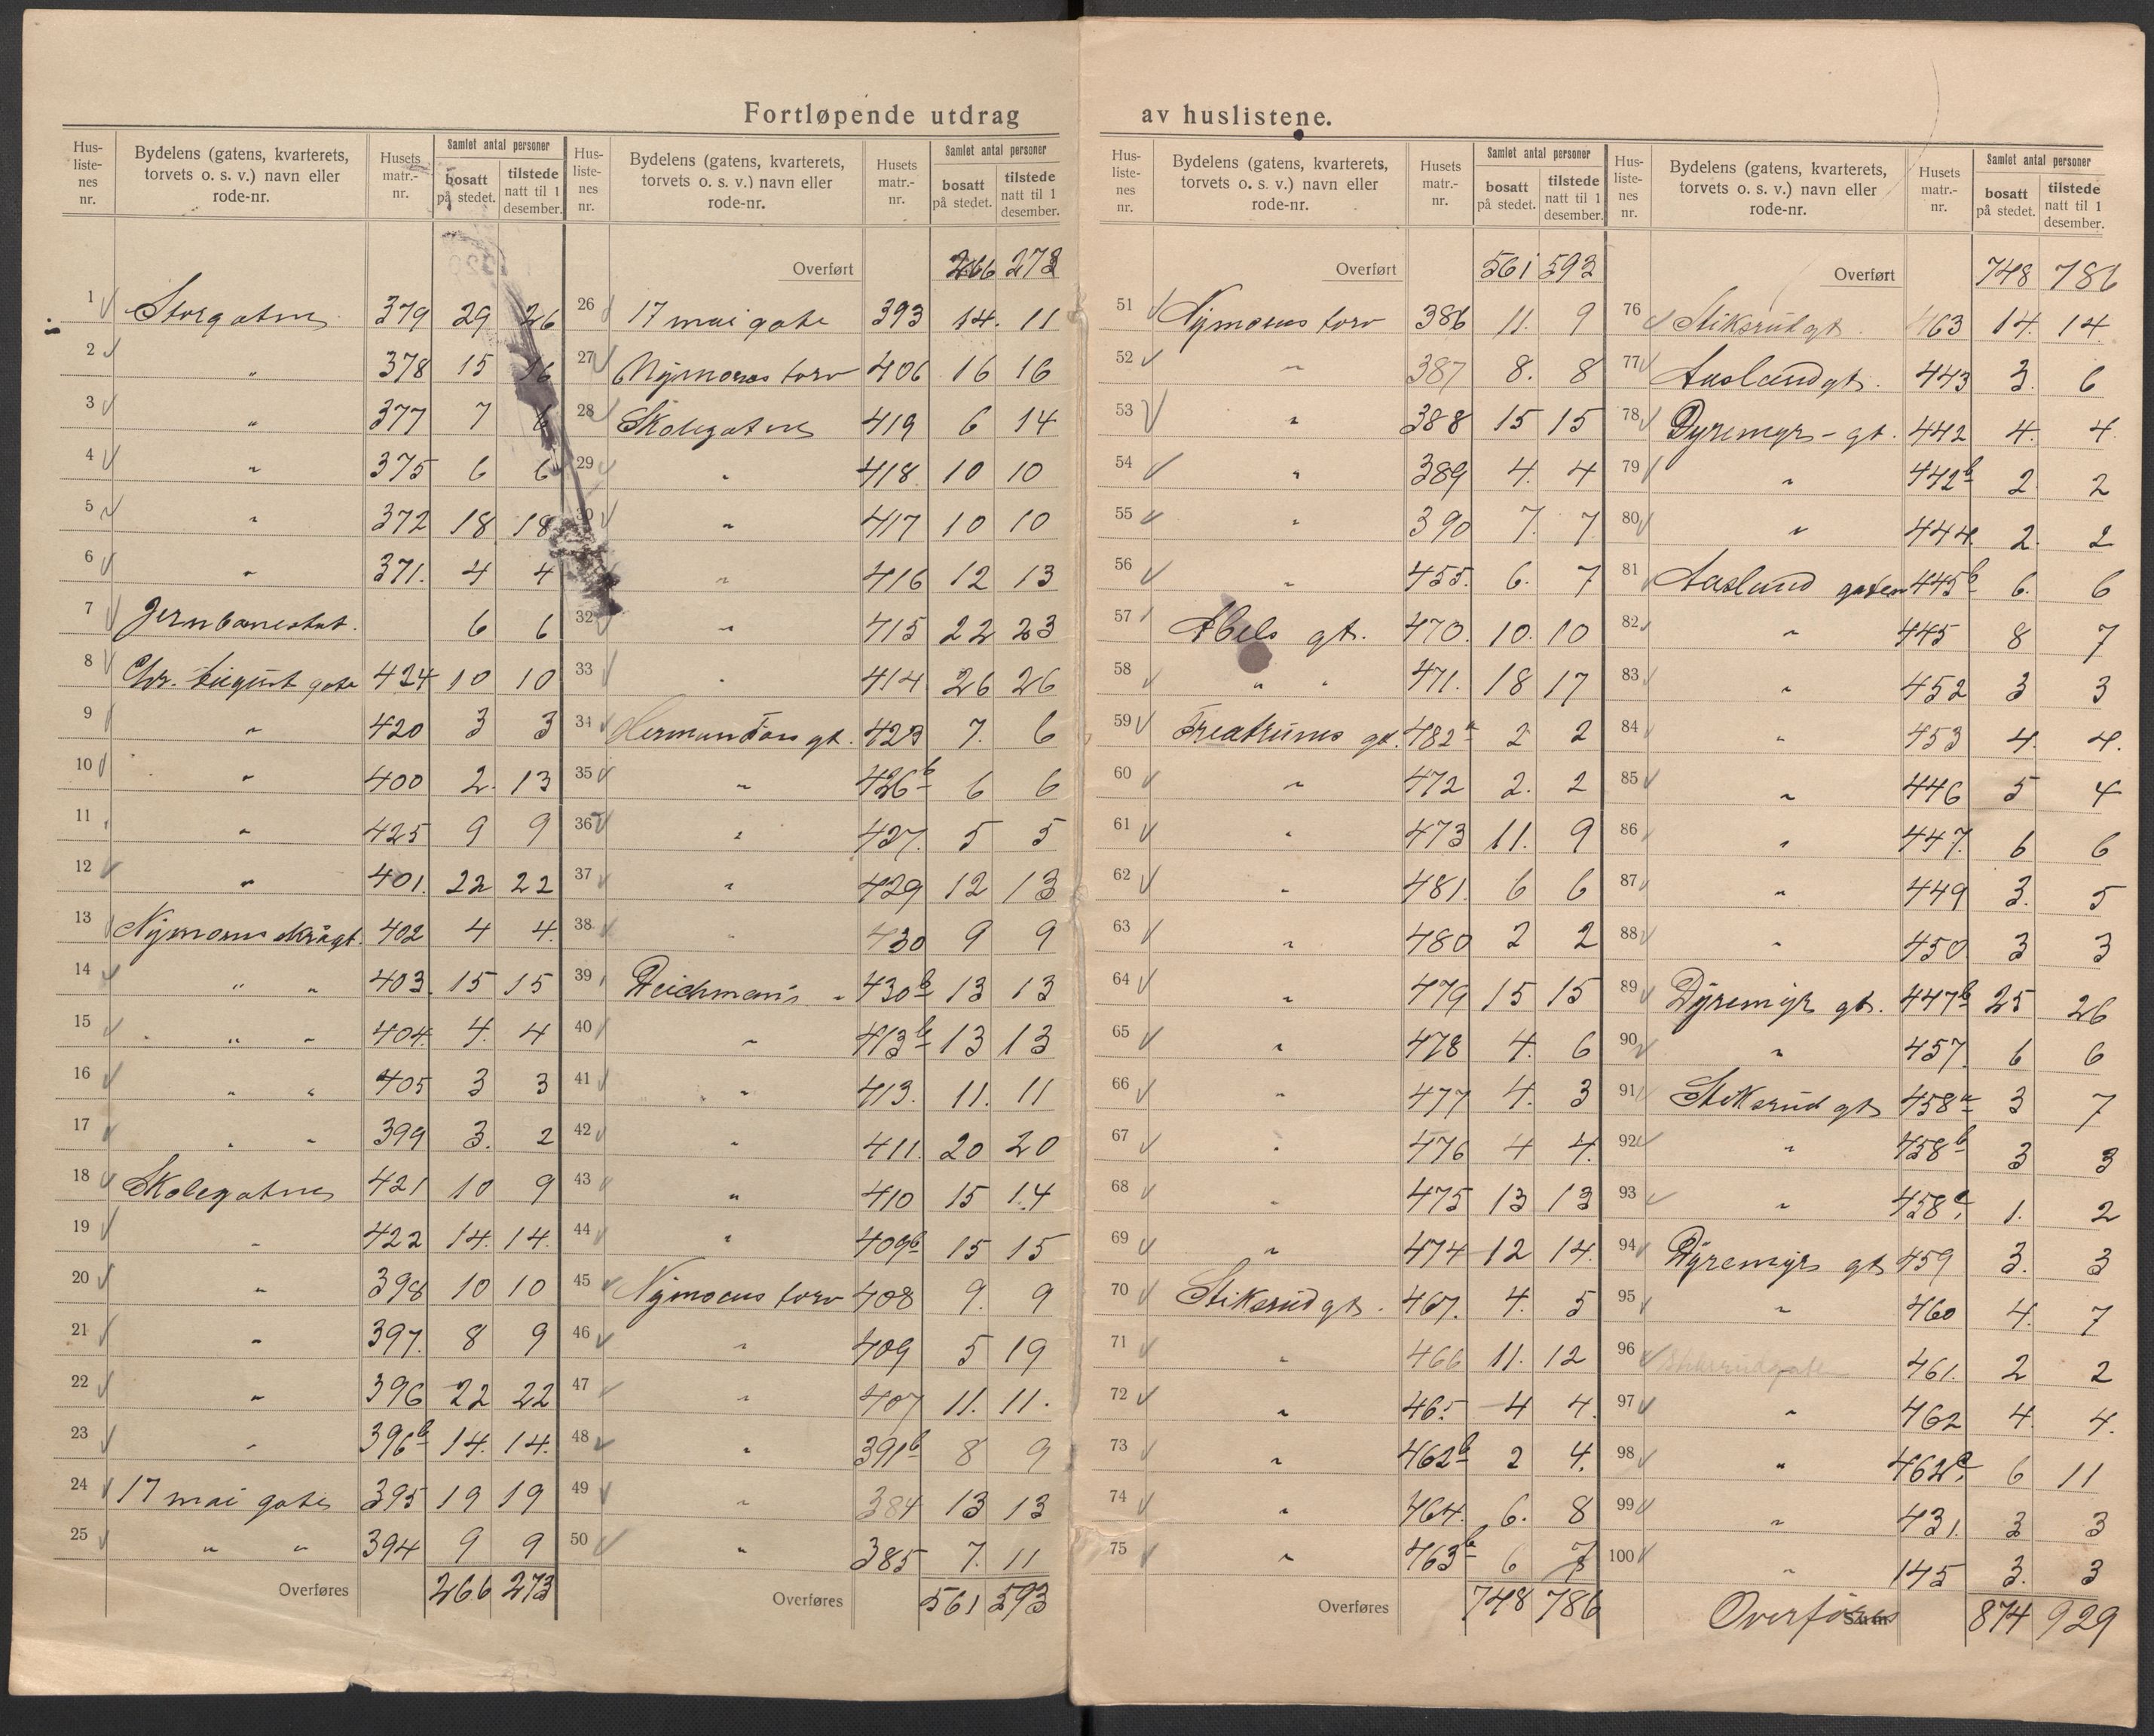 Fortløpende utdrag av huslistene.
Hus-liste-nes nr. Bydelens (gatens, kvarterets, torvets o. s. v.) navn eller rode-nr. Husets matr.-nr. Samlet antal personer bosatt på stedet. tilstede natt til 1 desember.
1 Storgatens 379 29 26
2 " 378 15 16
3 " 377 7 6
4 " 375 6 6
5 " 372 18 18
6 " 371. 4 4
7 Jernbanestat. 6 6
8 Chr. August gate 424 10 10
9 " 420 3 3
10 " 400 2. 13
11 " 425 9 9
12 " 401. 22 22
13 Nymoens skrågt. 402 4 4.
14 " " 403. 15 15
15 " " 404. 4. 4
16 " " 405 3 3
17 " " 399 3. 2
18 Skolegatens 421 10 9
19 " 422 14. 14.
20 " 398 10 10
21 " 397. 8 9
22 " 396 22 22
23 " 396b 14. 14.
24 17 mai gate 395 19 19
25 " " 394 9 9
Overføres 266 273
Hus-liste-nes nr. Bydelens (gatens, kvarterets, torvets o. s. v.) navn eller rode-nr. Husets matr.-nr. Samlet antal personer bosatt på stedet. tilstede natt til 1 desember.
Overført 266 273
26 17 mai gate 393 14. 11
27 Nymoens torv 406 16 16
28 Skolegatens 419 6 14
29 " 418 10 10
30 " 417 10 10
" 416 12 13
32 " 415 22 23
33 " 414 26 26
34 Herman Foss gt. 423 7. 6
35 " 426b 6 6
36 " 427. 5 5
37 " 429 12 13
38 " 430 9 9
39 Deichman's " 430b 13 13
40 " 413b 13 13
41 " 413. 11. 11
42 " 411. 20 20
43 " 410 15 14
44 " 409b 15 15
45 Nymoens torv 408 9. 9
46 " 409 5 19
47 " 407 11. 11.
48 " 391b 8 9
49 " 384 13 13
50 " 385 7. 11
Overføres 561 593
Hus-liste-nes nr. Bydelens (gatens, kvarterets, torvets o. s. v.) navn eller rode-nr. Husets matr.-nr. Samlet antal personer bosatt på stedet. tilstede natt til 1 desember.
Overført 561 593
51 Nymoens torv 386 11. 9
52 " 387 8. 8
53 " 388 15 15
54 " 389 4. 4
55 " 390 7. 7
56 " 455. 6. 7
57 Abels gt. 470. 10. 10
58 " " 471. 18 17
59 Treatrunes gt. 482a 2 2
60 " 472 2. 2
61 " 473 11. 9
62 " 481. 6 6
63 " 480 2 2
64 " 479 15 15
65 " 478 4. 6
66 " 477 4. 3
67 " 476 4 4.
68 " 475 13 13
69 " 474 12 14.
70 Stiksrud gt. 467. 4. 5
71 " 466 11. 12
72 " 465 4 4.
73 " 462b 2 4.
74 " 464. 6. 8
75 " 463b 6 7
Overføres 748 786
Hus-liste-nes nr. Bydelens (gatens, kvarterets, torvets o. s. v.) navn eller rode-nr. Husets matr.-nr. Samlet antal personer bosatt på stedet. tilstede natt til 1 desember.
Overført 748 786
76 Stiksrud gt. 463 14. 14.
77 Aaslund gt. 443 3. 6
78 Dyremyrs-gt. 442 4. 4
79 " 442b 2. 2
80 " 444. 2. 2
81 Aaslund gaten 445b 6. 6
82 " 445 8 7
83 " 452 3 3
84 " 453 4. 4.
85 " 446 5 4
86 " 447. 6 6
87 " 449 3. 5
88 " 450 3 3
89 Dyremyr gt. 447b 25 26
90 " 457. 6 6
91 Stiksrud gt 458a 3 7
92 " 458b 3 3
93 " 458c. 1. 2
94 Dyremyrs gt 459 3. 3
95 " 460 4. 7
96 Stiksrudgate 461. 2 2
97 " 462 4. 4.
98 " 462c. 6 11
99 " 431. 3 3
100 " 145 3. 3
Overføres Sum 874 929